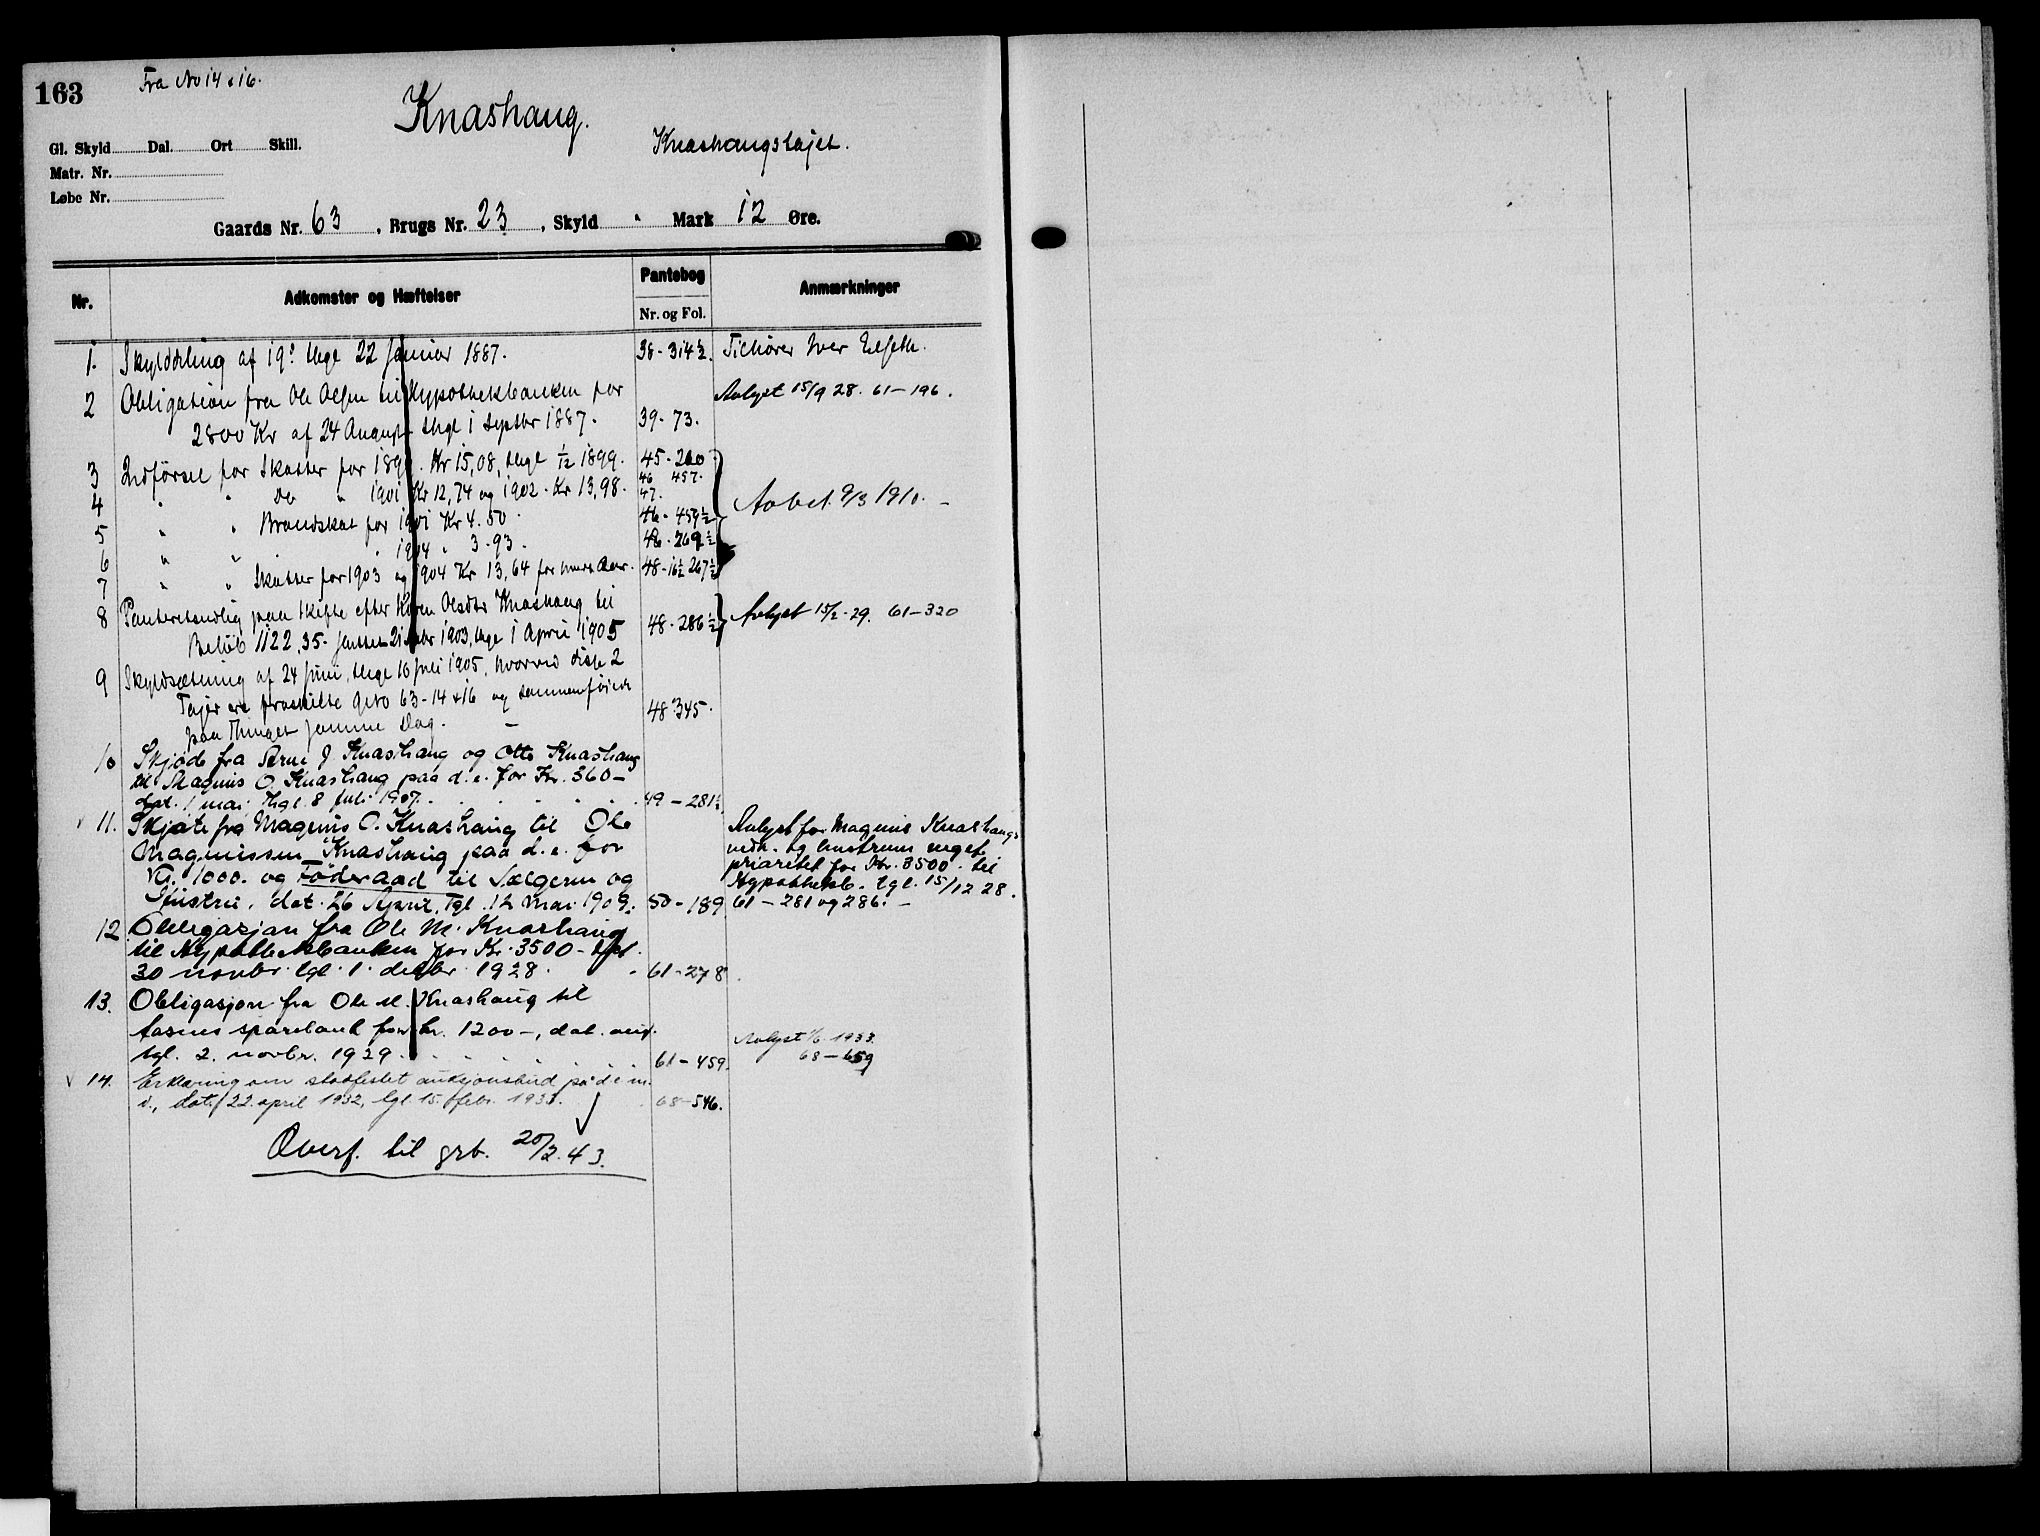 163
Fra No 14 & 16.
Knashaug.
Knashaugstøjet.
Gl. Skyld Dal. Ort Skill.
Matr. Nr.
Løbe Nr.
Gaards Nr. 63, Brugs Nr. 23, Skyld " Mark 12 Øre.
Nr. Adkomster og Hæftelser Pantebog Nr. og Fol. Anmærkninger
1. Skylddeling af 19. thgl 22 Januar 1887. 38-314½. Tilhører Iver
2 Obligation fra Ole Olsen til Hypothekbanken for Avlyst 15/9 28. 61-196.
2800 Kr af 24 August thgl 1 Septbr 1887. 39-73.
3 Indførsel for Skatter for Kr 15,08, thgl 1/12 1899. 45-260
4 " " Do " 1901 Kr 12,74 og 1902 Kr 13,98. 46 457. 47.
Avbet. 9/3 1910. -
5 " " Brandskat for 1901 Kr 4.50 46-459½
6 " " " 1904 " 3.93. 48-269½
7 " " Skatter for 1903 og 1904 Kr 13,64 for hvert Aar. 48-16½ 267½
8 Panteretandlig paa Skifte efter Karen Olsdtr Knashaug til
Beløb 1122,35. sluttet 21 1903, thgl 1 April 1905 48-286½ Avlyst 15/2-29. 61-320
9 Skyldsætning af 24 Juni, thgl 16 Juli 1905, hvorved disse 2
Tøjer ere fraskilte Gno 63-14 & 16 og sammenføiede
paa Thinget samme Dag. - 48-345.
10 Skjøde fra Arne J Knashaug og Otto Knashaug
til Magnus O. Knashaug paa d.e. for Kr. 360-
dat. 1 mai Thgl. 8 Juli 1907. 49-281½
11. Skjøte fra Magnus O. Knashaug til Ole
Magnussen Knashaug paa d.e. for
Kr. 1000. og Føderaad til Sælgeren og
Hustru, dat. 26 April, Tgl. 12 Mai 1909. 50-189
Avlyst for Magnus Knashaugs
vedk. og hustruen veget
prioritet for Kr. 3500. til
Hypothekb. tgl. 15/12 28.
61-281 og 286. -
12 Obligasjon fra Ole M. Knashaug
til Hypothekbanken for Kr. 3500- dat.
30 novbr. tgl. 1. desbr. 1928. 61-278.
13. Obligasjon fra Ole M. Knashaug til
Aasnes sparebank for kr. 1200-, dat. og
tgl. 2. novbr. 1929. 61-459.
Avlyst 1/6 1933.
68-659
14. Erklæring om stadfestet auksjonsbud på d.e. m.
v., dat. 22. april 1932, tgl. 15. febr. 1933. 68-546.
Overf. til grb. 20/2.43.